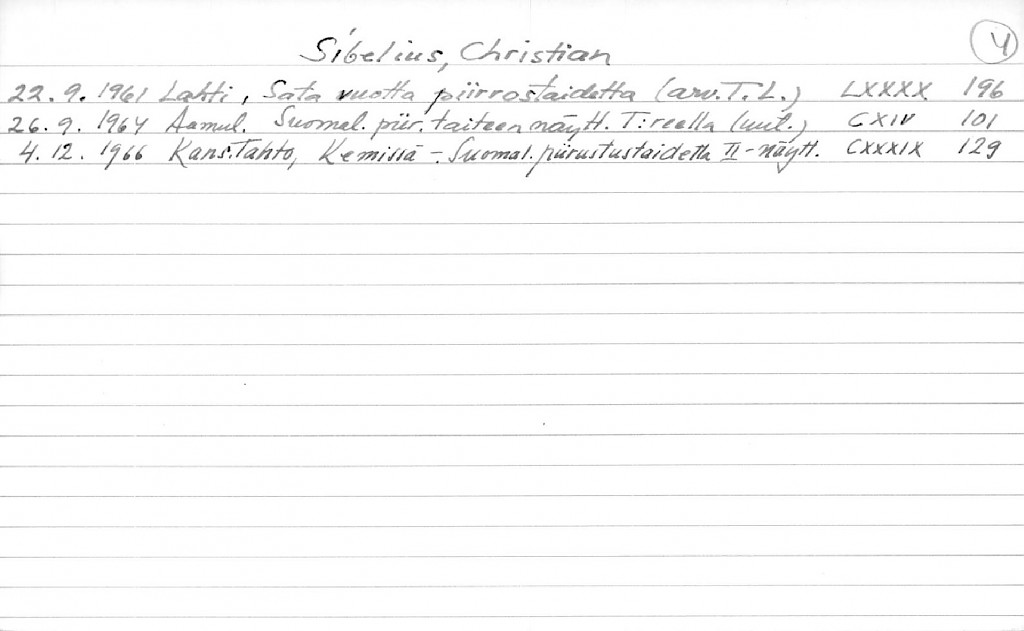 Sibelius, Christian
4
22.9.1961 Lahti, Sata vuotta piirrostaidetta (arv. T.L.) LXXXX 196
26.9.1964 Aamul. Suomal. piir. taiteen näytt. T:reella (uut.) CXIV 101
4.12.1966 Kans.Tahto, Kemissä - Suomal. piirustustaidetta II-näytt. CXXXIX 129